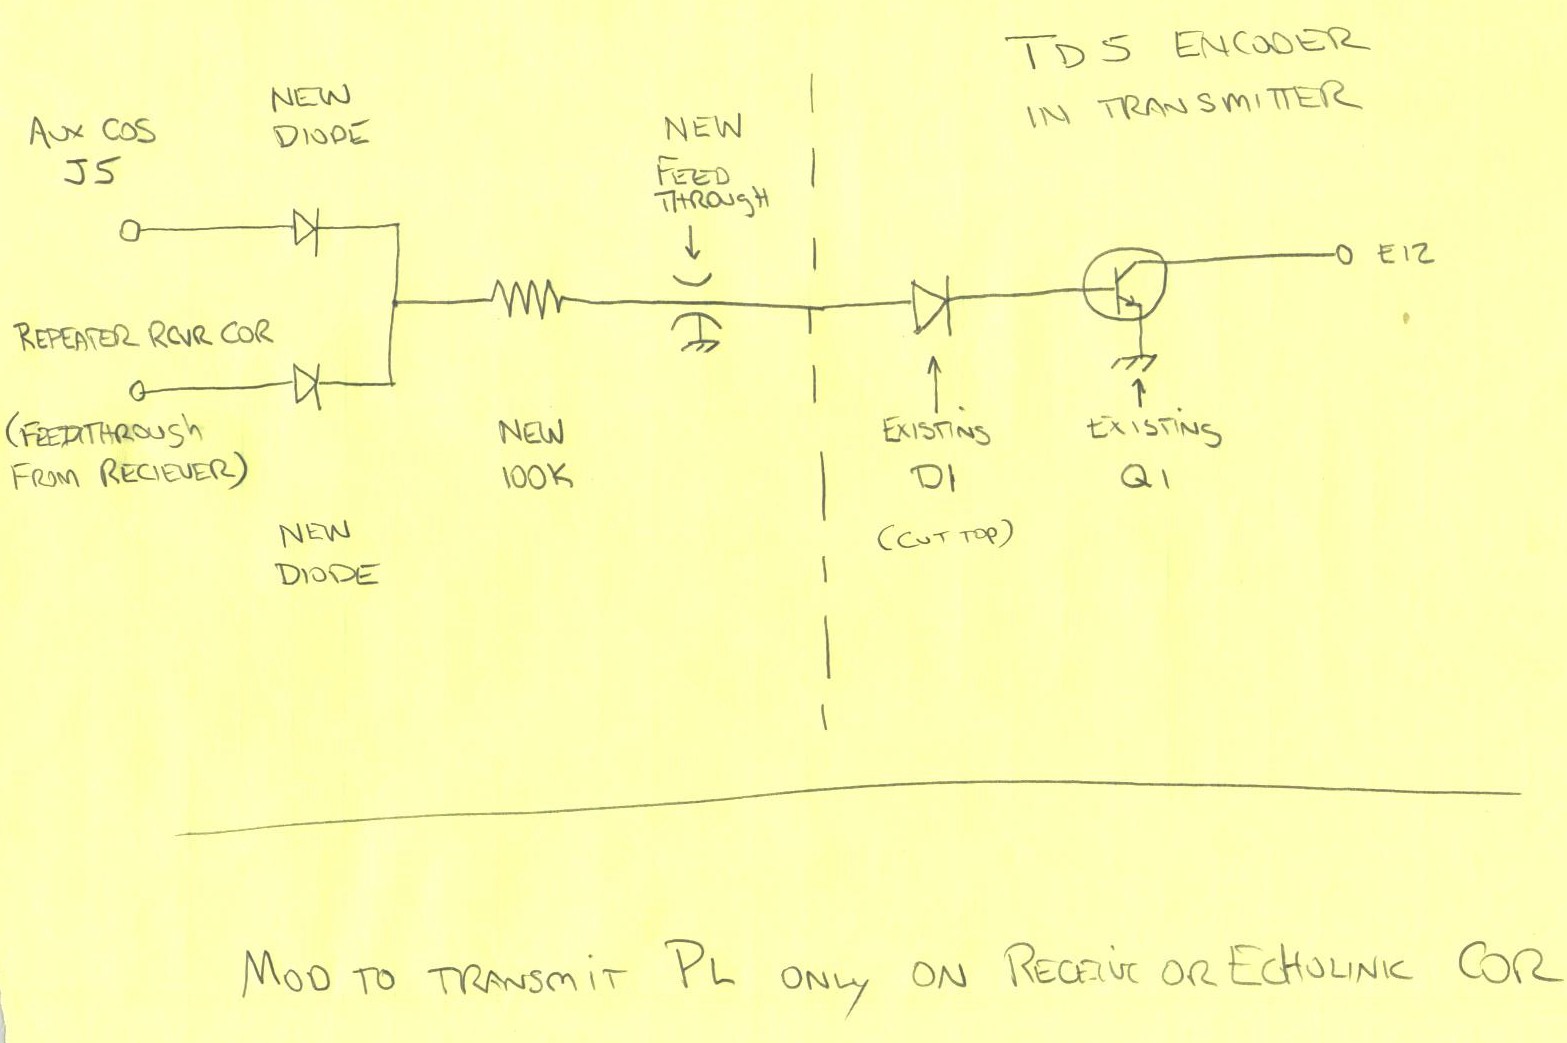 TD5 ENCODER
IN TRANSMITTER
NEW
DIODE
AUX COS
J5
NEW
FEED
THROUGH
E12
REPEATER RCVR COR
(FEEDTHROUGH
FROM RECIEVER)
NEW
100K
EXISTING
D1
(CUT TOP)
EXISTING
Q1
NEW
DIODE
MOD TO TRANSMIT PL ONLY ON RECEIVE OR ECHOLINK COR